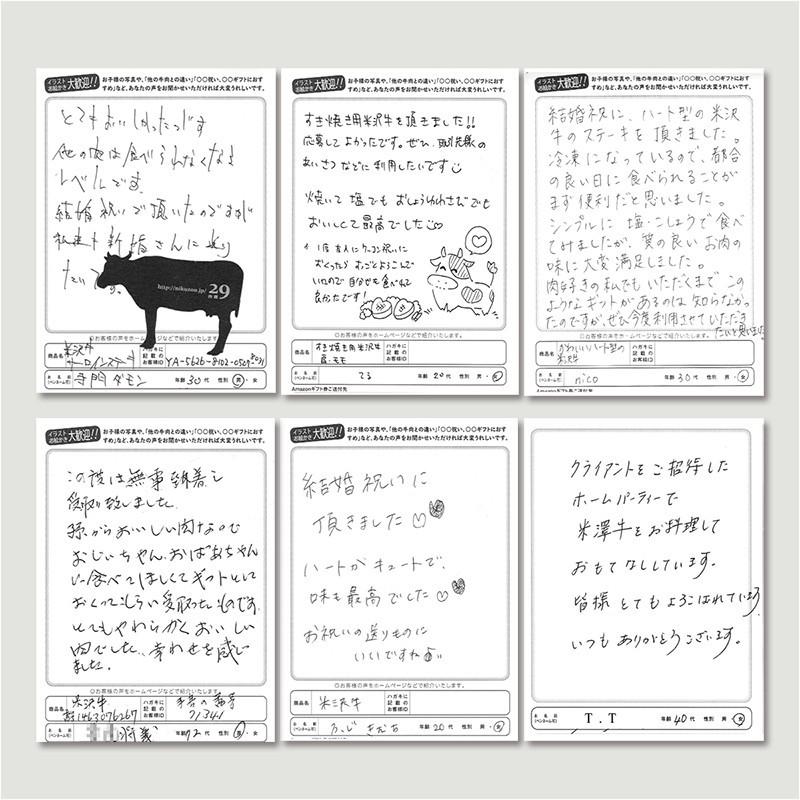 イラスト
お絵かき
大歓迎!!
お子様の写真や、「他の牛肉との違い」「〇〇祝い、〇〇ギフトにおす
すめ」など、あなたの声をお聞かせいただければ大変うれしいです。
とてもおいしかったです
他の肉は食べられなくなる
レベルです。
結婚祝いで頂いたのですが
新婚さんに送り
たいです。
http://nikuzou.jp/ 29
〇お客様の声をホームページなどで紹介いたします。
商品名
米沢牛
サーロインステーキ
ハガキに
記載の
お客様ID
YA-5626-8102-0529-
お名前
(ペンネーム可)
寺門ダモン
年齢 30代 性別 男・女
イラスト
お絵かき
大歓迎!!
お子様の写真や、「他の牛肉との違い」「〇〇祝い、〇〇ギフトにおす
すめ」など、あなたの声をお聞かせいただければ大変うれしいです。
すき焼き用米沢牛を頂きました!!
応募してよかったです。ぜひ、取引先様の
あいさつなどに利用したいです
焼いて塩でもおしょうゆわさびでも
おいしくて最高でした
おくったらすっごとよろこんで
いたので自分も食べれて
良かったです!
〇お客様の声をホームページなどで紹介いたします。
商品名
すき焼き用米沢牛
肩・モモ
ハガキに
記載の
お客様ID
お名前
(ペンネーム可)
てる
年齢 20代 性別 男・女
Amazonギフト券ご送付先
イラスト
お絵かき
大歓迎!!
お子様の写真や、「他の牛肉との違い」「〇〇祝い、〇〇ギフトにおす
すめ」など、あなたの声をお聞かせいただければ大変うれしいです。
結婚祝に、ハート型の米沢
牛のステーキを頂きました。
冷凍になっているので、都合
の良い日に食べられることが
まず便利だと思いました。
シンプルに塩・こしょうで食べ
てみましたが、質の良いお肉の
味に大変満足しました。
肉好きの私でもいただくまでこの
ようなギフトがあるのは知らなかっ
たのですが、ぜひ今度利用させていただき
たいと思いました
〇お客様の声をホームページなどで紹介いたします。
商品名
かわいいハート型の
米沢牛
ハガキに
記載の
お客様ID
お名前
(ペンネーム可)
nico
年齢 30代 性別 男・女
Amazonギフト券ご送付先
イラスト
お絵かき
大歓迎!!
お子様の写真や、「他の牛肉との違い」「〇〇祝い、〇〇ギフトにおす
すめ」など、あなたの声をお聞かせいただければ大変うれしいです。
この度は無事到着し
受取り致しました。
孫からおいしい肉なので
おじいちゃん、おばあちゃん
に食べてほしくてギフトとして
おくってもらい受取ったものです。
とてもやわらかくおいしい
肉でした。幸わせを感じ
ました。
〇お客様の声をホームページなどで紹介いたします。
商品名
米沢牛
1463076267
ハガキに
記載の
お客様ID
71341
お名前
(ペンネーム可)
年齢 72代 性別 男・女
イラスト
お絵かき
大歓迎!!
お子様の写真や、「他の牛肉との違い」「〇〇祝い、〇〇ギフトにおす
すめ」など、あなたの声をお聞かせいただければ大変うれしいです。
結婚祝いに
頂きました
ハートがキュートで、
味も最高でした
お祝いの送りものに
いいですね
〇お客様の声をホームページなどで紹介いたします。
商品名
米沢牛
ハガキに
記載の
お客様ID
お名前
(ペンネーム可)
年齢 20代 性別 男・女
クライアントをご招待した
ホームパーティーで
米澤牛をお料理して
おもてなししています。
皆様とてもよろこばれています
いつもありがとうございます。
お名前
(ペンネーム可)
T.T
年齢 40代 性別 男・女